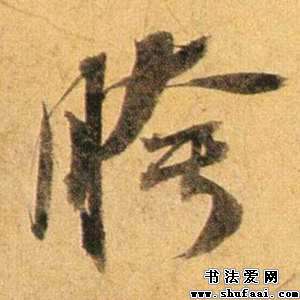 胯
书法爱网
www.shufaai.com